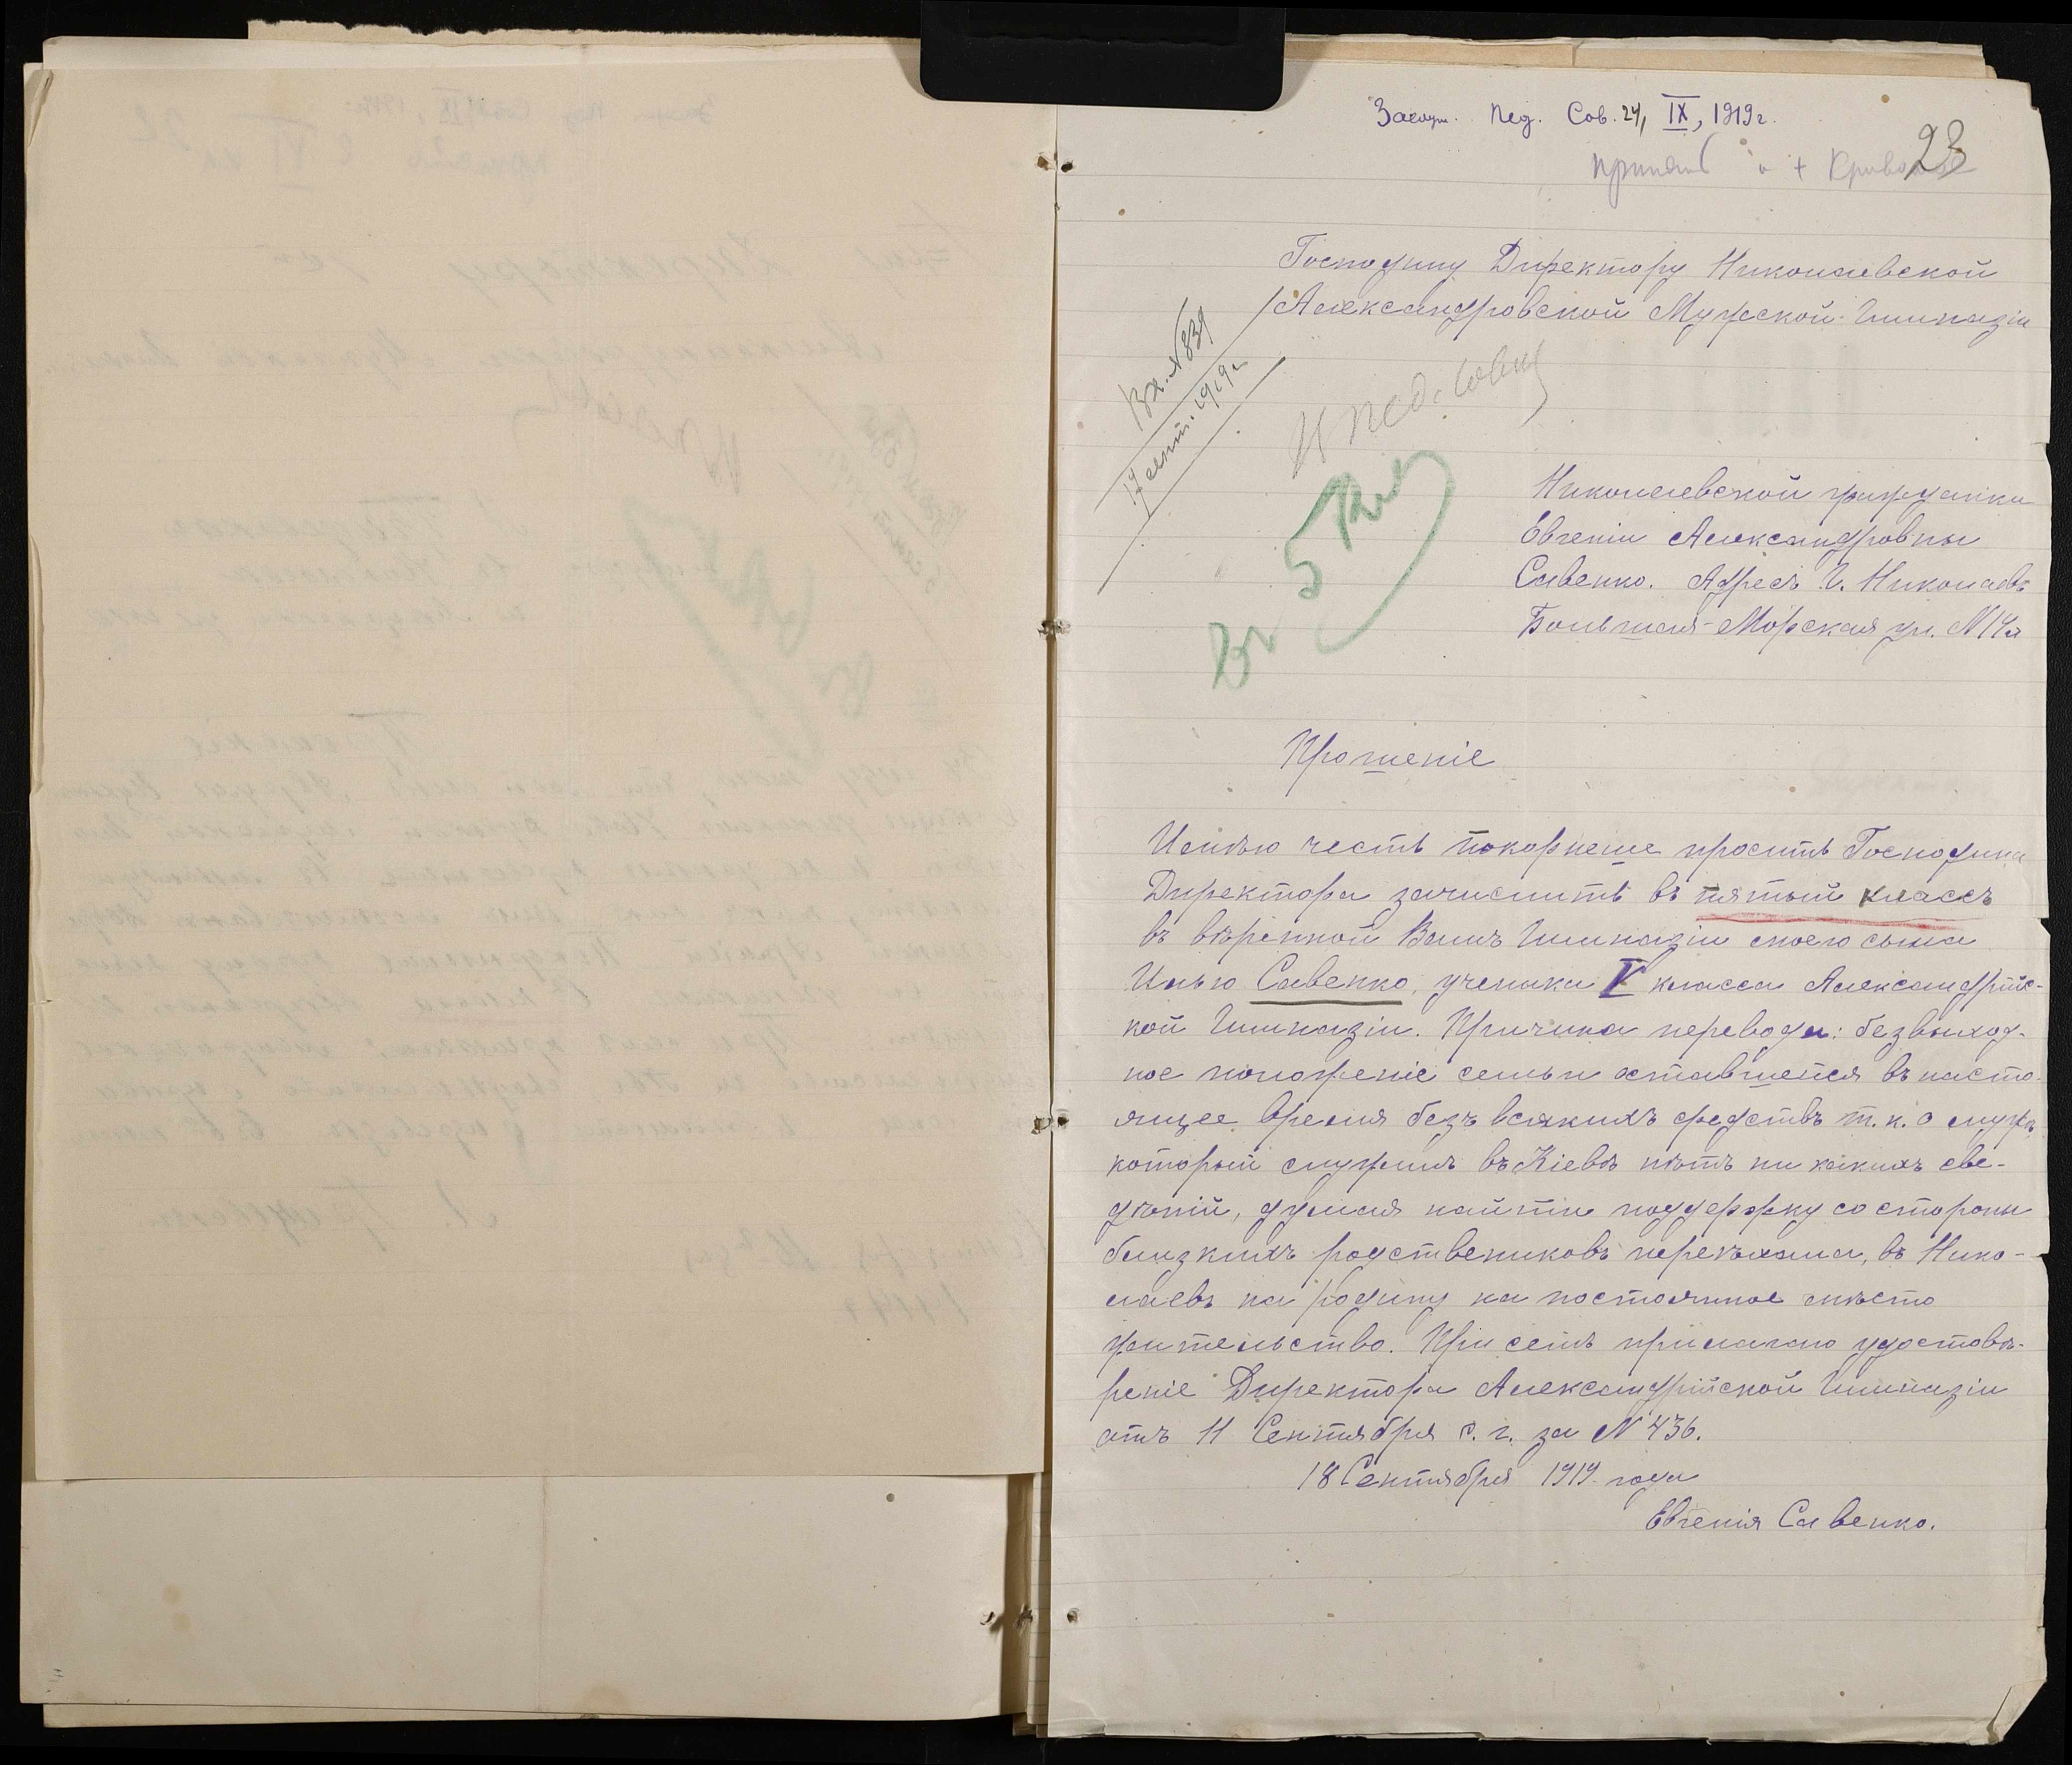 Засѣд. Пед. Сов. 24, IX, 1919 г.
23
принять
Господину Директору Николаевской
Александровской Мужской Гимназіи
Вх. № 839
сент. 1919 г.
Къ пед. совѣту
5 кл
Николаевской гражданки
Евгеніи Александровны
Савенко. Адресъ г. Николаевъ
Большая-Морская ул. №
Прошеніе
Имѣю честь покорнеше просить Господина
Директора зачислить въ пятый классъ
въ вѣренной Вамъ Гимназіи моего сына
Илью Савенко, ученика V класса Александрійс-
кой Гимназіи. Причина перевода: безвыход-
ное положеніе семьи оставшейся въ насто-
ящее время безъ всякихъ средствъ т.к. о мужѣ
который служилъ въ Кіевѣ нѣтъ ни какихъ све-
дѣній, думая найти поддержку со стороны
близкихъ родствениковъ переѣхала, въ Нико-
лаевъ на родину на постоянное мѣсто
жительство. При семъ прилагаю удостовѣ-
реніе Директора Александрійской Гимназіи
отъ 11 Сентября с. г. за № 436.
18 Сентября 1919 года
Евгенія Савенко.